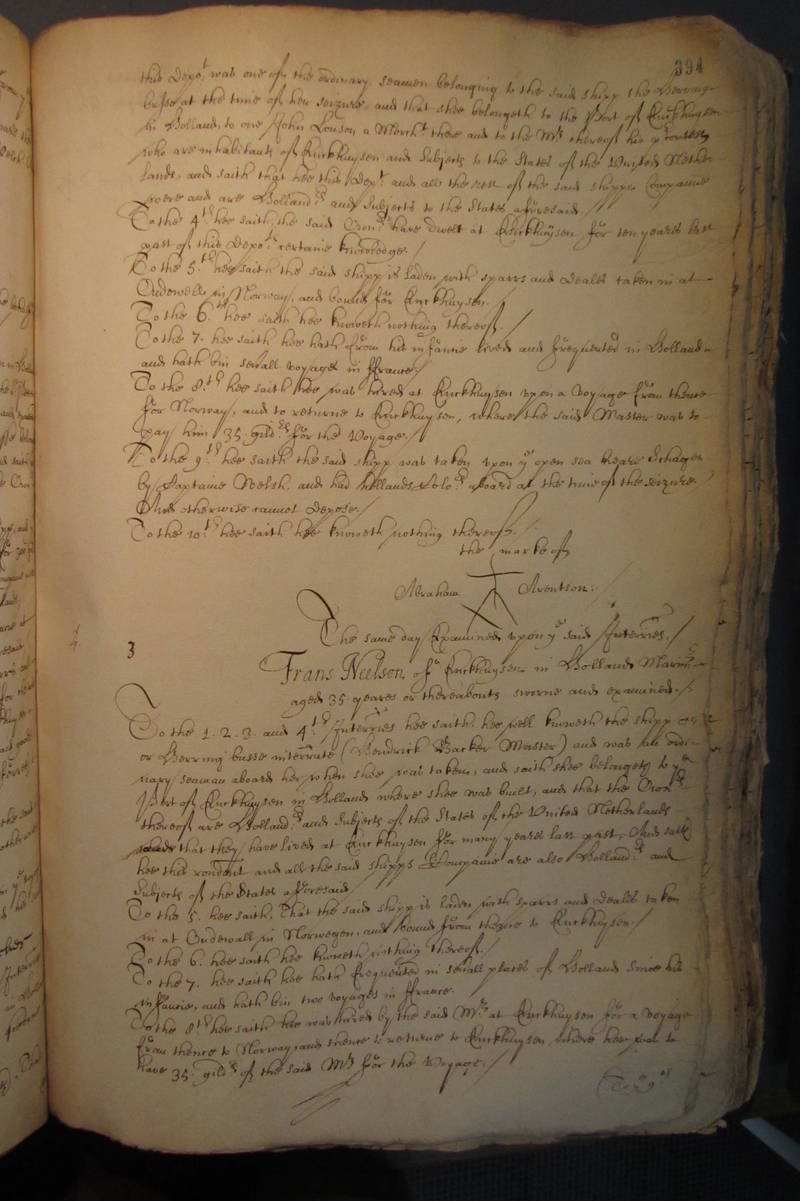 394
this Depo:t was one of the ordinary seamen belonging to the said shipp the Herring
busse at the time of her seizure, and that shee belongeth to the Port of Enckhuysen
in Holland, to one John Louson a March:t there and to the M:r thereof
who are inhabitants of Enckhuysen and Subjects to the States of the United Nether-
lands, and saith that hee this Dep:t and all the rest of the said shipps Companie
were and are Holland:rs and Subjects to the States aforesaid. //
To the 4:th hee saith, the said Own:rs have dwelt at Enckhuysen for ten yeares last
past of this Depo:ts certaine knowledge. /
To the 5:th hee saith the said shipp is laden with sparrs and Deales taken in at
Oudewells in Norway, and bound for Enckhuysen. /
To the 6:th hee saith hee knoweth nothing thereof. /
To the 7. hee saith hee hath from his infancie lived and frequented in Holland
and hath bin severall voyages in ffrance /
To the 8:th hee saith hee was hired at Enckhuysen upon a voyage from thence
for Norway, and to returne to Enckhuysen, where the said Master was to
pay him 35. gild:rs for the Voyage. /
To the 9:th hee saith the said shipp was taken upon y:e open sea neare Schagen
by Captaine Welsh, and had hollands aboard at the time of the seizure.
And otherwise cannot Depose. /
To the 10:th hee saith hee knoweth nothing thereof. /
the marke of
Abraham Arentson: /
The same day Examined upon y:e said Interries. /
3
Frans Neelson of Enckhuysen in Holland Marin:r
aged 35 yeares or thereabouts sworne and examined. /
To the 1. 2. 3. and 4:th Interries hee saith hee well knoweth the shipp
or Herring busse interrate (Hendrick Backer Master) and was an ordi-
nary seaman aboard her when shee was taken, and saith shee belongeth to y:e
Port of Enckhuysen in Holland where shee was built, and that the Own:rs
thereof are Holland:rs and Subjects of the States of the United Netherlands
that they have lived at Enckhuysen for many yeares last past, And saith
hee this rondent and all the said shipps Companie are also Holland:rs and
Subjects of the States afforesaid /
To the 5. hee saith, That the said shipp is laden with sparrs and Deales taken
in at Oudewall in Norwegen, and bound from thence to Enckhuysen. /
To the 6. hee saith hee knoweth nothing thereof. /
To the 7. hee saith hee hath frequented in severall places of Holland since his
infancie, and hath bin two voyages in ffrance.
To the 8:th hee saith hee was hired by the said M:r at Enckhuysen for a voyage
from thence to Norway and thence to returne to Enckhuysen, where hee was to
have 35. gild:rs of the said M:r for the Voyage. /